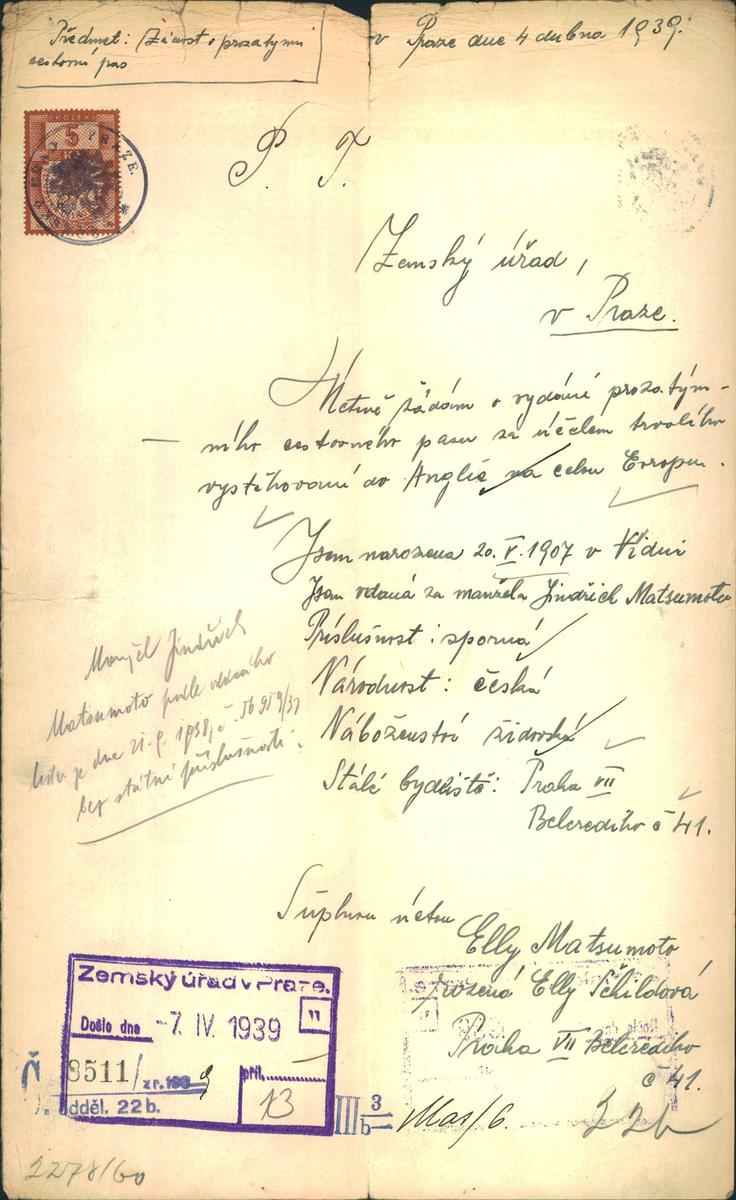 Předmět: Žádost o prozatymní
cestovní pas
v Praze dne 4 dubna 1939.
KOLEK
5
P. T.
Zemský úřad,
v Praze.
Uctivě žádám o vydání prozatým-
ního cestovného pasu za účelem trvalého
vystěhovaní do Anglie na celou Evropu.
Jsem narozena 20. V. 1907 v Vídni
Jsem vdaná za manžela Jindřich Matsumoto
Příslušnost: sporná
Národnost: česká
Náboženství židovská
Stálé bydliště: Praha VII
Belcrediho č 41.
Manžel Jindřich
Matsumoto podle
listu je dne 21.
bez státní příslušnosti.
S úplnou úctou
Elly Matsumoto
rozená Elly Schildová
Praha VII Belcrediho
č 41.
Zemský úřad v Praze.
Došlo dne -7. IV. 1939
"
Č. 8511/ z r. 1939
příl. 13
odděl. 22b.
III 3/b
Mas/6.
22b
2278/60